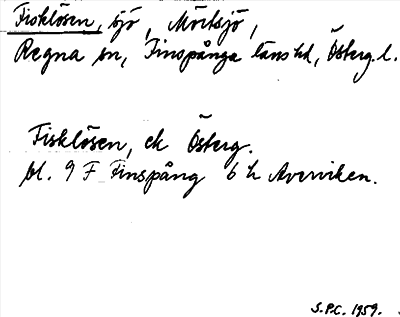 Fisklösen, sjö, Mörtsjö,
Regna sn, Finspånga läns hd, Österg. l.
Fisklösen, ek Österg.
bl. 9 F Finspång 6 h Averviken.
S.P.C. 1959.